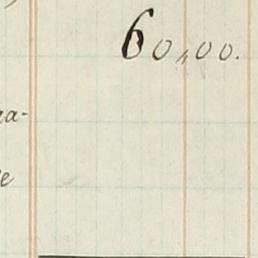 60,00.
aa-
e